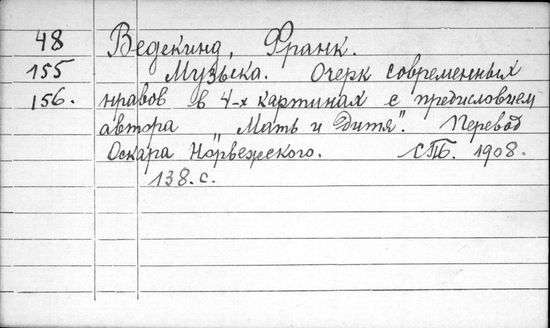 48 Ведекинд, Франк.
155 Музыка. Очерк современных
156. нравов в 4-х картинах с предисловием
автора „Мать и Дитя". Перевод
Оскара Норвежского. СПБ. 1908.
138.с.